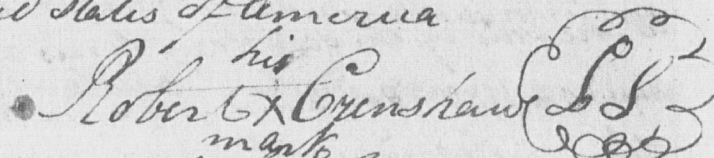 d States of America
his
Robert X Crenshaw LS
mark